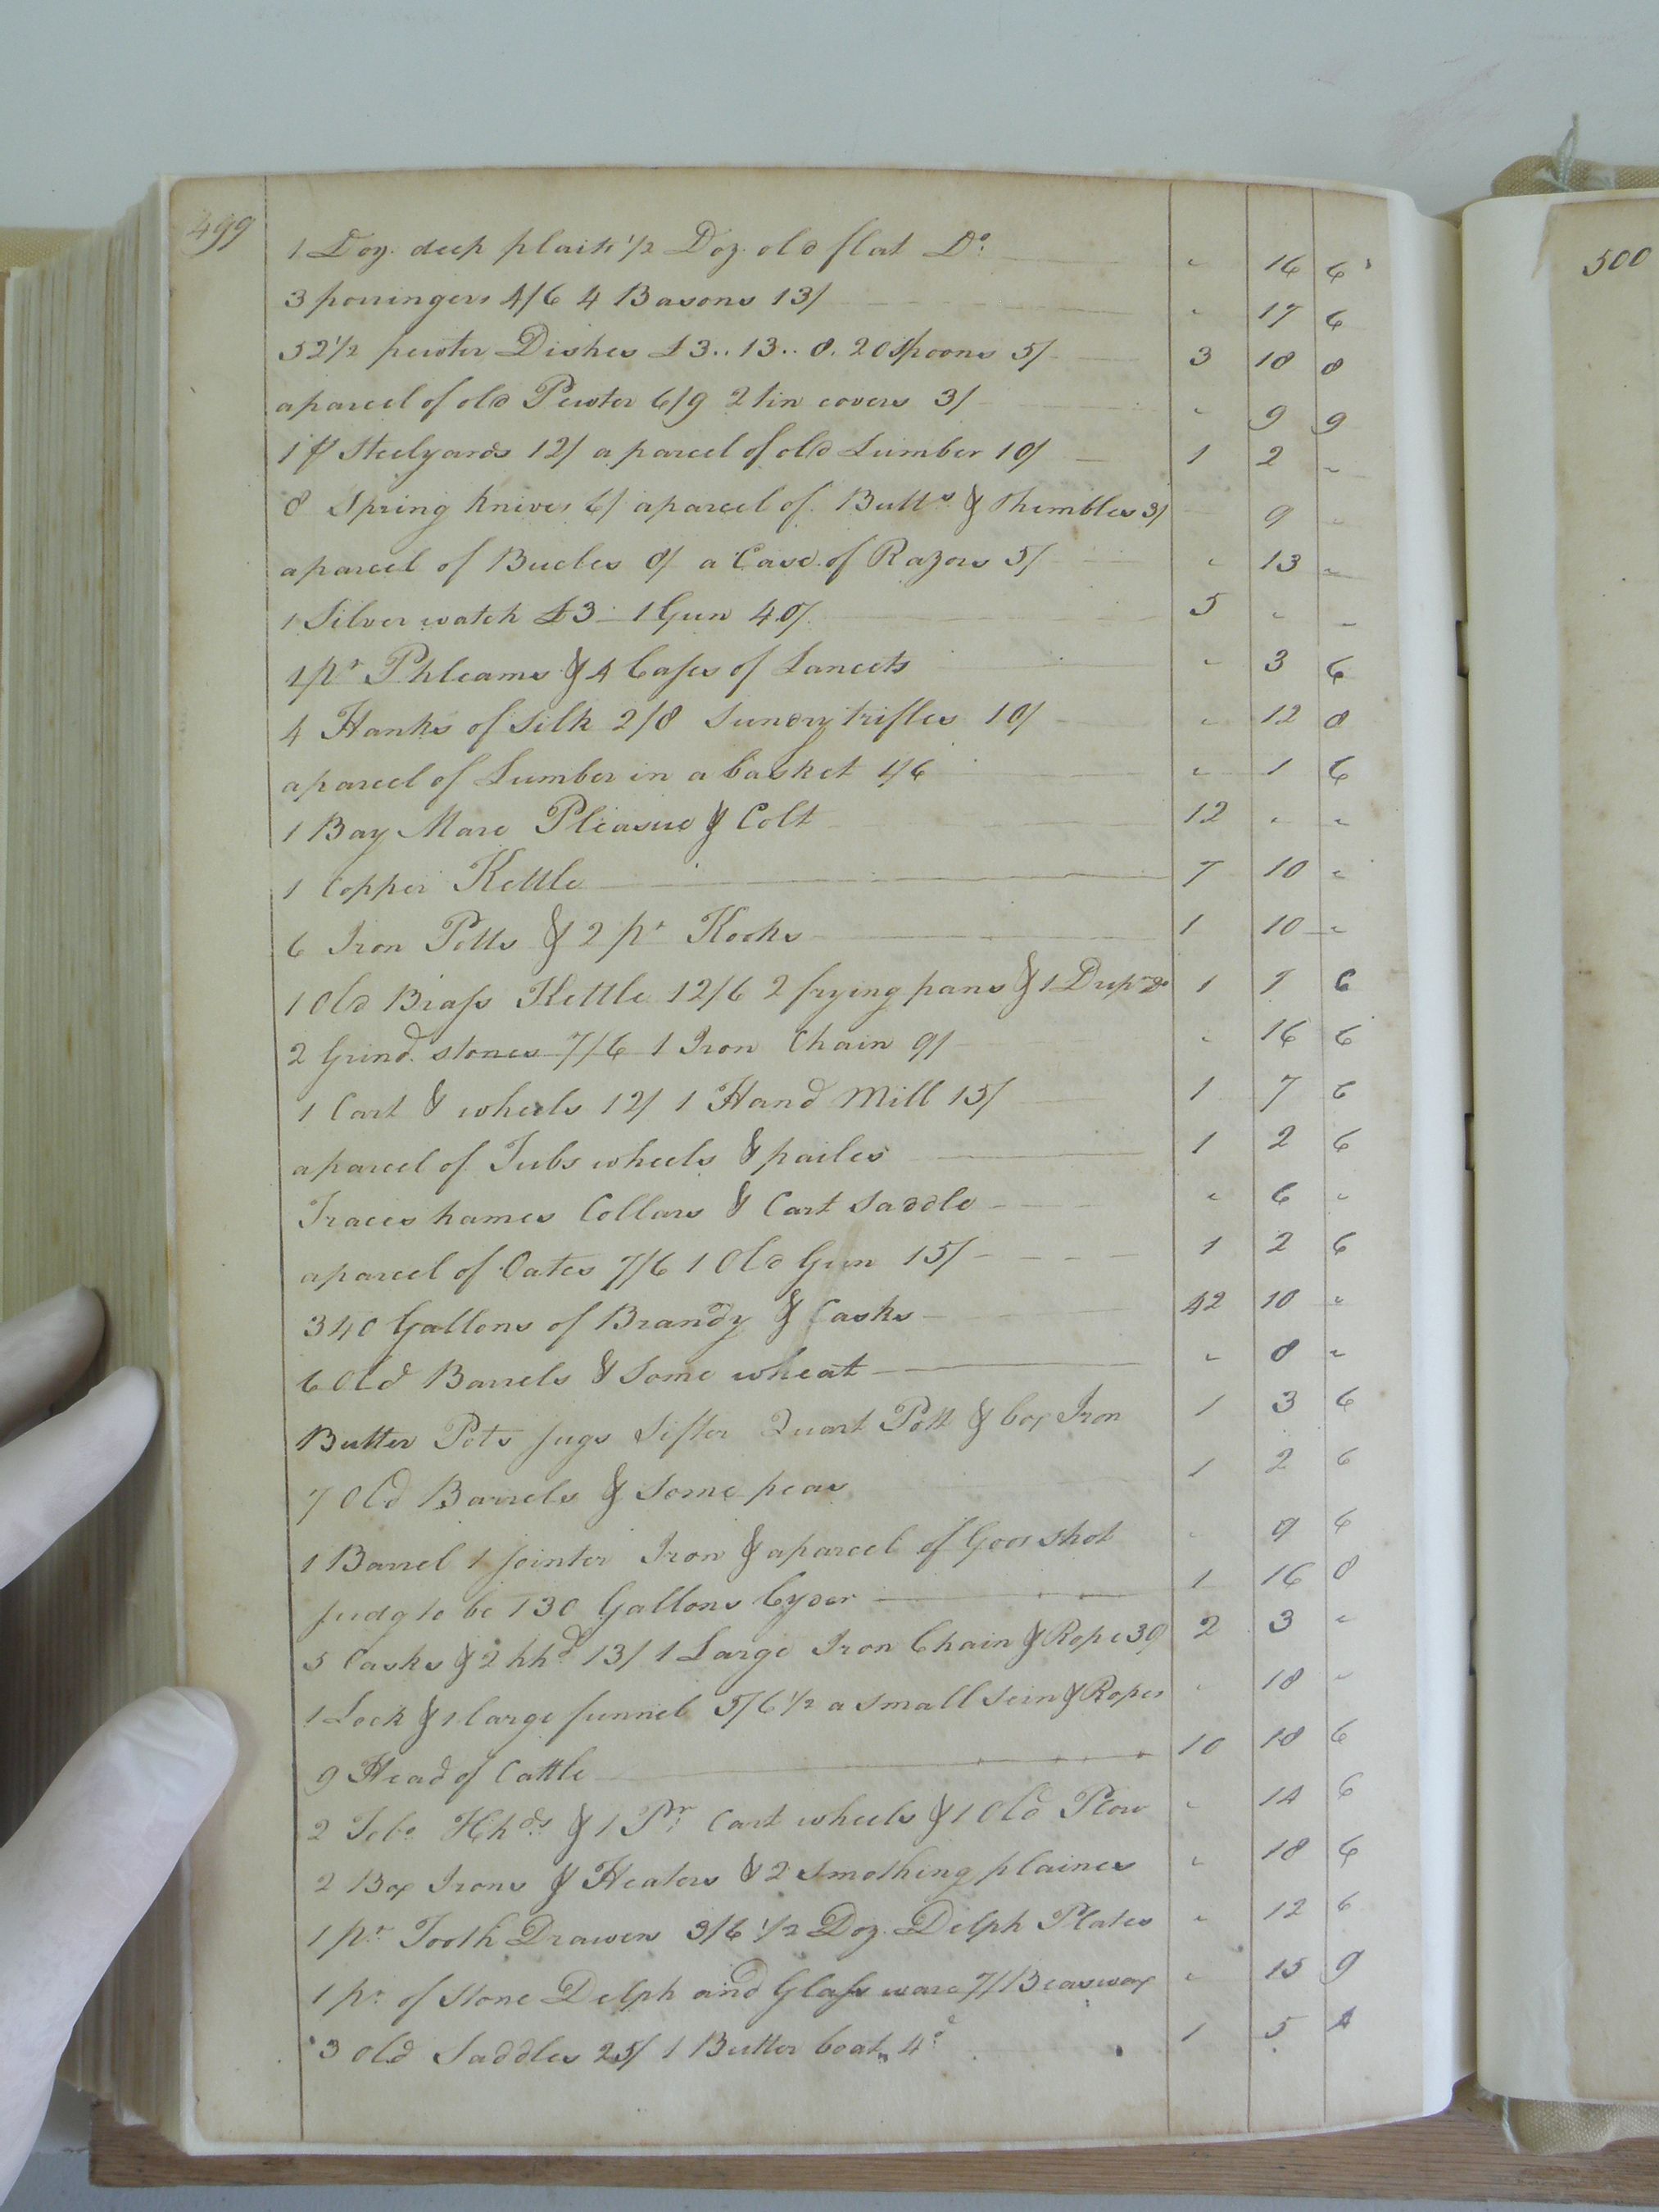 499
1 Doz. deep plaits 1/2 Doz. old flat Do. " 16 6
3 porringers 4/6 4 Basons 13/ " 17 6
52 1/2 pewter Dishes £3..13..8. 20 Spoons 5/ 3 18 8
a parcel of old Pewter 6/9 2 tin covers 3/ " 9 9
1 pr Steelyards 12/ a parcel of old Lumber 10/ 1 2 "
8 Spring Knives 6/ a parcel of Butts & Thimbles 3/ 9 "
a parcel of Bucles 8/ a Case of Razors 5/ " 13 "
1 Silver watch £3 - 1 Gun 40/. 5 " "
1 pr Phleams & 4 Cases of Lancets " 3 6
4 Hanks of Silk 2/8 Sundry trifles 10/ " 12 8
a parcel of Lumber in a basket 1/6 " 1 6
1 Bay Mare Pleasure & Colt 12 " "
1 Copper Kettle 7 10 "
6 Iron Potts & 2 pr Hooks 1 10 "
1 Old Brass Kettle 12/6 2 frying pans & 1 Drip Do 1 7 6
2 Grind. stones 7/6 1 Iron Chain 9/ " 16 6
1 Cart & wheels 12/ 1 Hand Mill 15/ 1 7 6
a parcel of Tubs wheels & pailes 1 2 6
Traces hames Collars & Cart Saddle " 6 "
a parcel of Oates 7/6 1 Old Gun 15/ 1 2 6
340 Gallons of Brandy & Casks 42 10 "
6 Old Barrels & Some wheat " 8 "
Butter Pots Jugs Sifter Quart Pott & box Iron 1 3 6
7 Old Barrels & Some peas 1 2 6
1 Barrel 1 Jointer Iron & a parcel of Goos Shot " 9 6
Judg to be 130 Gallons Cyder 1 16 8
5 Casks & 2 hhd 13/ 1 Large Iron Chain & Rope 30 2 3 "
1 Lock & 1 large funnel 5/6 1/2 a small Sein & Ropes " 18 "
9 Head of Cattle 10 18 6
2 Tobo Hhds & 1 Pr. Cart wheels & 1 Old Plow " 14 6
2 Box Irons & Heaters & 2 Smothing plaines " 18 6
1 pr. Tooth Drawers 3/6 1/2 Doz. Delph Plates " 12 6
1 pr. of Stone Delph and Glass ware 7/ Beaswax " 15 9
3 old Saddles 25/ 1 Butter boat 4d 1 5 4
500